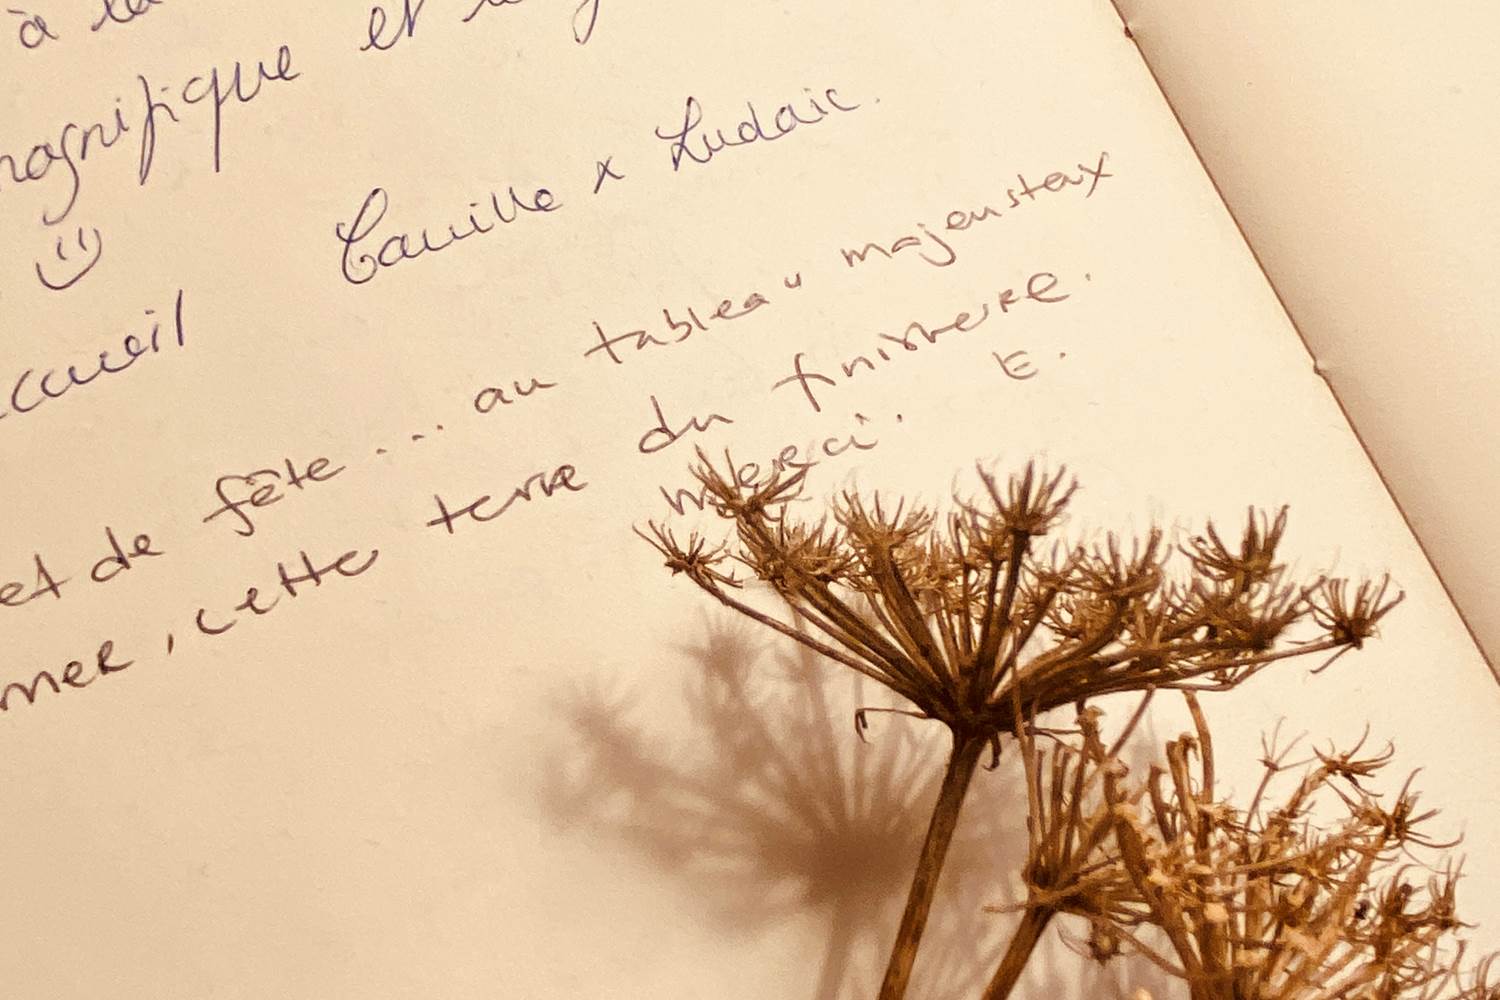 à la
magnifique et
Camille x Ludaic.
accueil
et de fête.... au tableau majeusteux
mer, cette terre du finistere.
merci. E.